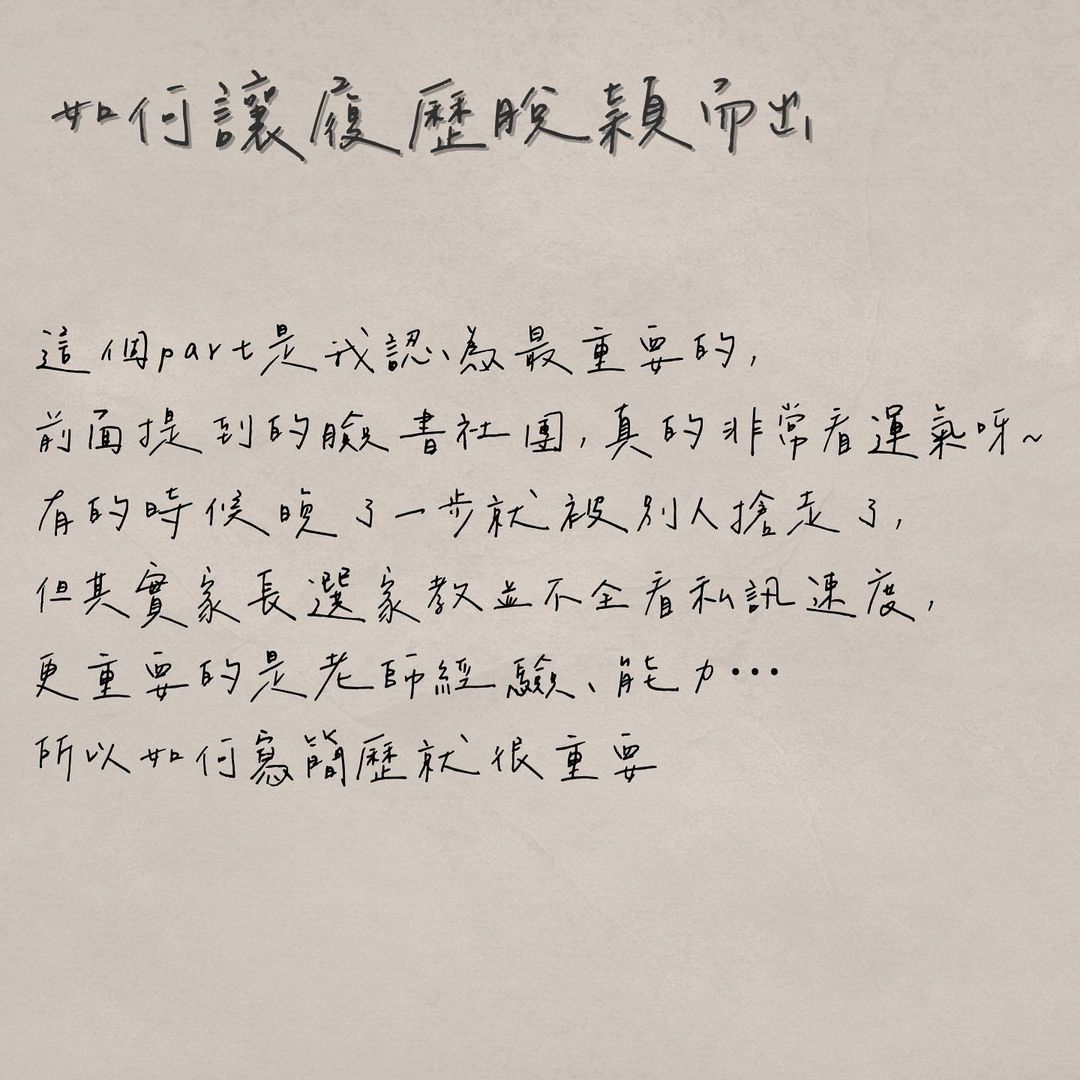 如何讓履歷脫穎而出
這個part是我認為最重要的,
前面提到的臉書社團,真的非常看運氣呀~
有的時候晚了一步就被別人搶走了,
但其實家長選家教並不全看私訊速度,
更重要的是老師經驗、能力...
所以如何寫簡歷就很重要